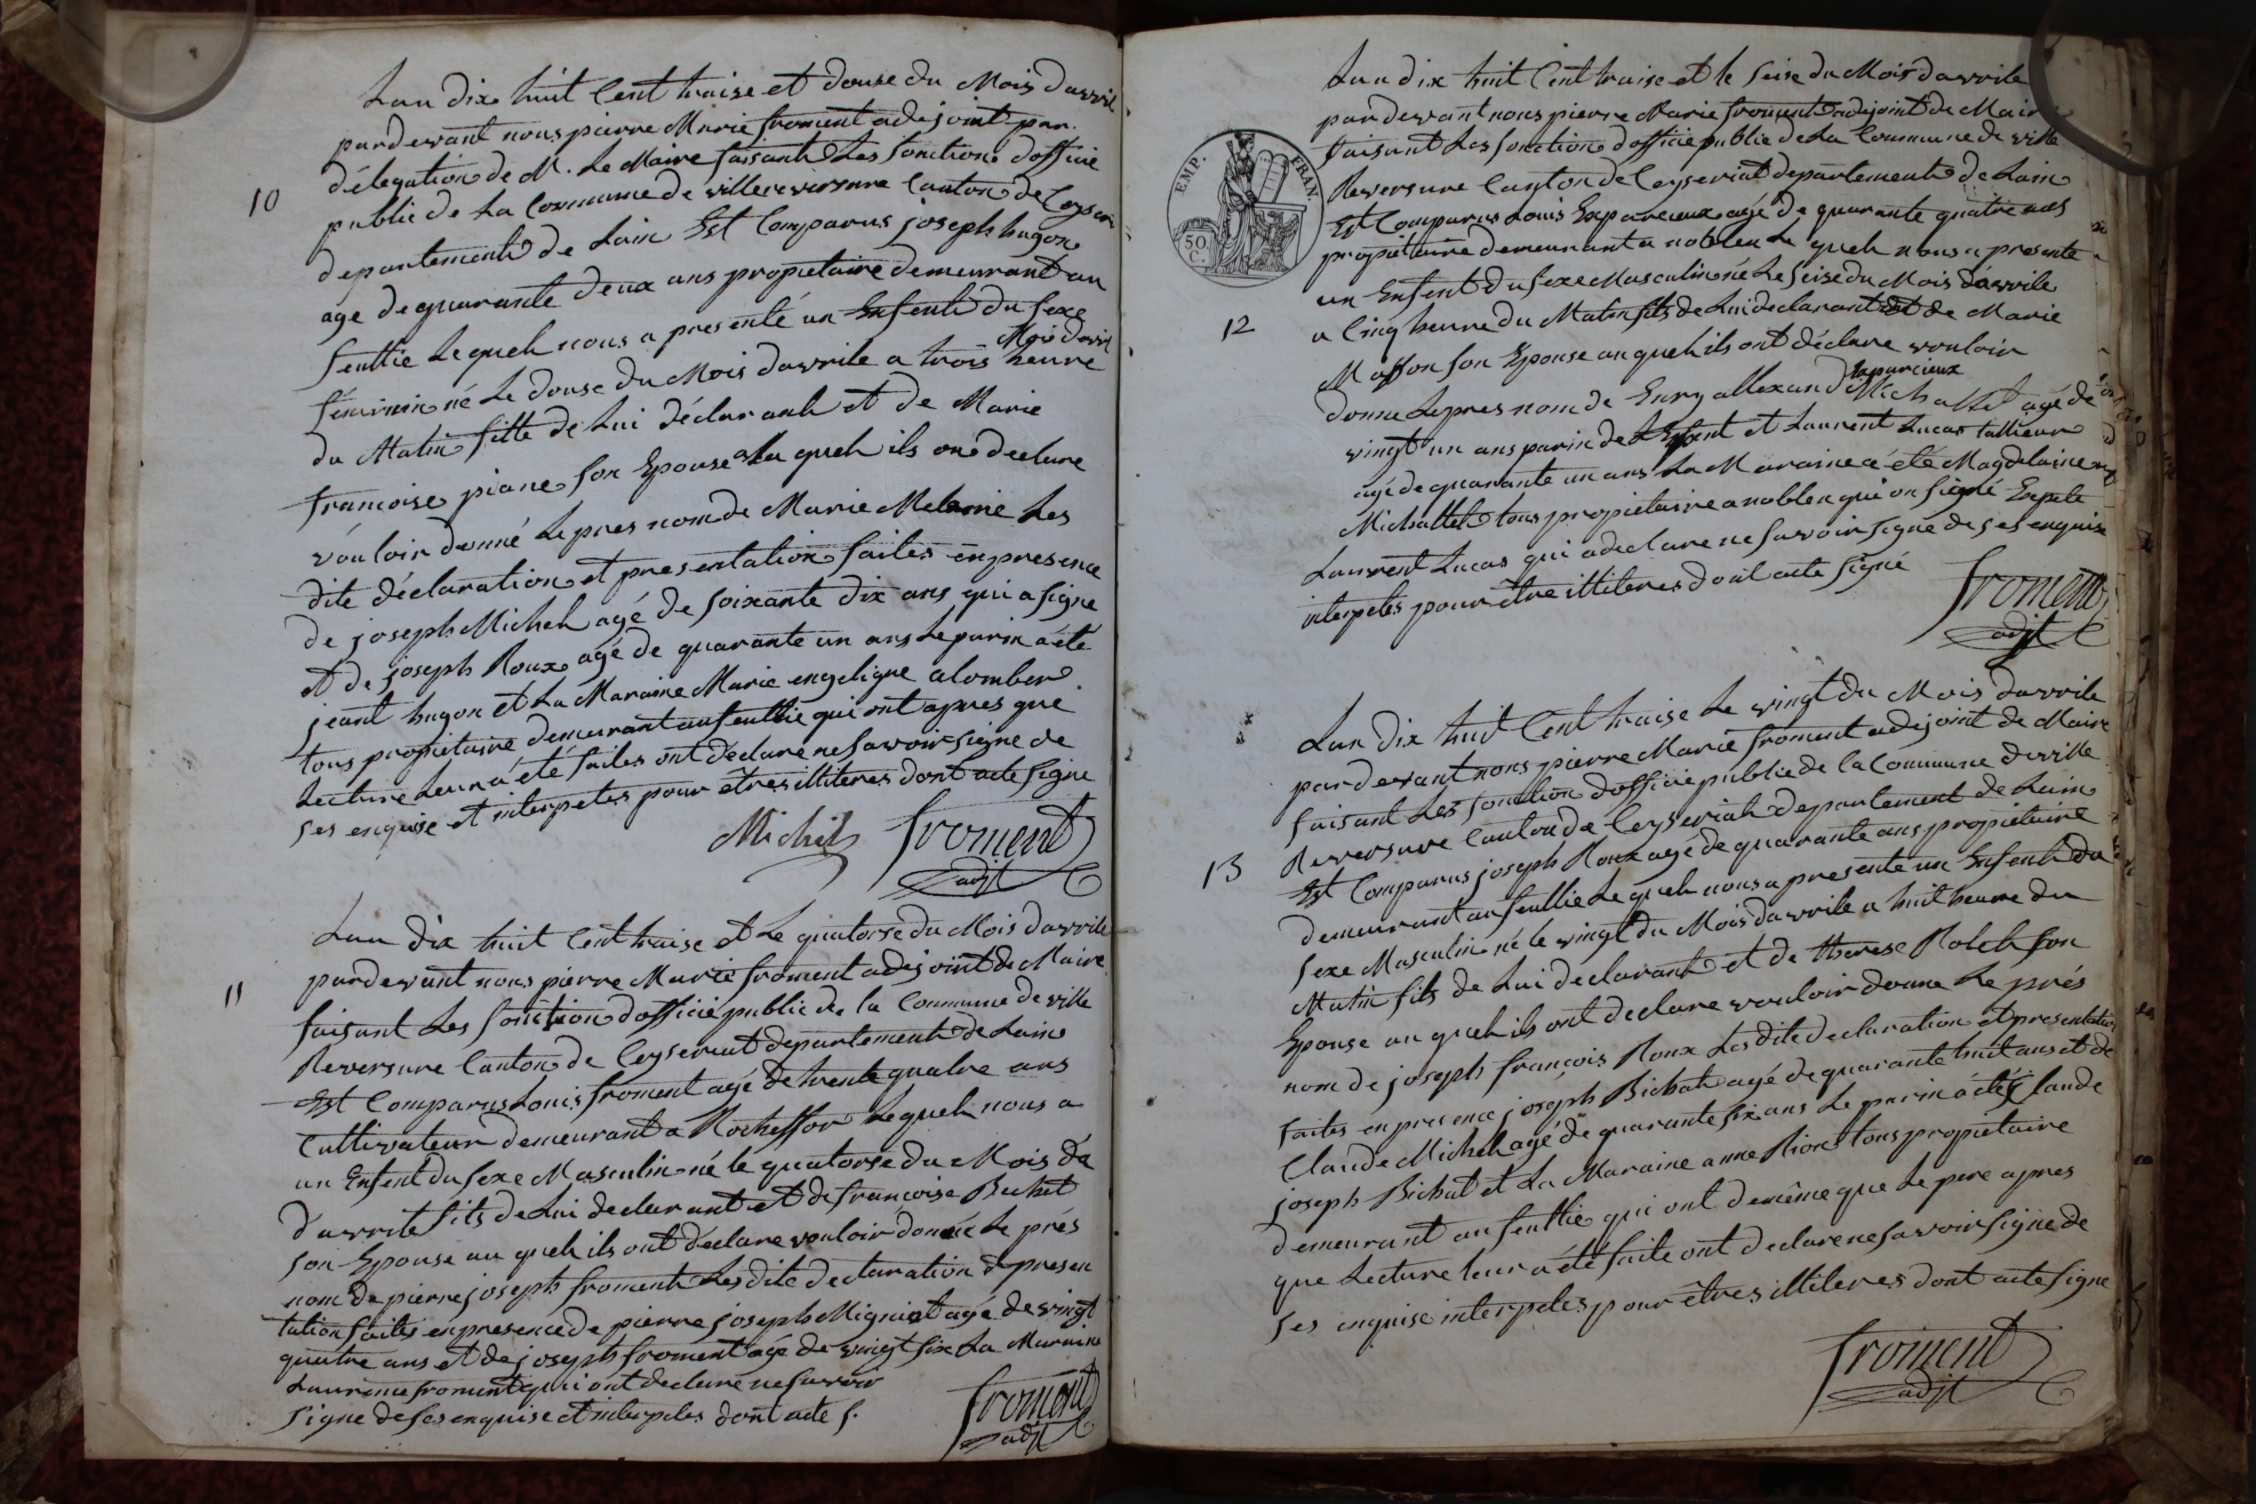 Lan dix huit Cent traise et douse du Mois davril
pardevant nous pierre Marie froment adejoint par
délegation de M. Le Maire faisant Les fonction dofficié
10
public de La Commune de villereversure Canton de Ceyseria
departement de Lain Est Comparus joseph hugon
age de quarante deux ans propietaire demeurant au
feullie Le quel nous a presenté un Enfent du sexe
Mois davril
féminin né Le douse du Mois davrile a trois heure
du Matin fille de Lui déclarant et de Marie
francoise piane son Epouse a La quel ils ont declare
vouloir donné Le pres nom de Marie Melanie Les
dite déclaration et presentation faites en presence
de joseph Michel agé de soixante dix ans qui a signe
et de joseph Roux agé de quarante un ans Le parin a été
jeant hugon et La Maraine Marie engeligue alombert
tous propietaire demeurant au feullie qui ont apres que
Lecture Leur a été faites ont déclare ne savoir signe de
ses enquise et interpetes pour êtres illiteres dont acte signe
Michel froment
adjt
Lan dix huit Cent traise et Le quatorse du Mois davrile
pardevant nous pierre Marie froment adejoint de Maire
11
faisant Les fonction dofficié public de la Commune de ville
Reversure Canton de Ceyseriat departement de Lain
Est Comparus Louis froment agé de trente quatre ans
Cultivateur demeurant a Rocheffor Le quel nous a
un Enfent du sexe Masculin né le quatorse du Mois da
davrile fils de Lui declarant et de francoise Buchet
son Epouse au quel ils ont déclare vouloir donné Le prés
nom de pierre joseph froment Les dite declaration et presen
tation faites en presence de pierre joseph Migniot agé de vingt
quatre ans et de joseph froment agé de vingt six La Maraine
Laurence froment qui ont declare ne savoir
signe de ses enquise et interpetes dont acte s.
froment
adjt
Lan dix huit Cent traise et le seise du Mois davrile
pardevant nous pierre Marie froment adejoint de Maire
faisant Les fonction dofficié public de La Commune de ville
EMP. FRAN.
50 C.
Reversure Canton de Ceyseriat departement de Lain
Est Comparus Louis Exparcieux agé de quarante quatre ans
propietaire demeurant a noblen Le quel nous a presente
un Enfent du sexe Masculin né Le seise du Mois davrile
12
a Cinq heure du Matin fils de Lui declarant et de Marie
Masson son Epouse au quel ils ont déclare vouloir
Exparcieux
donne Le pres nom de Enry allexand Michallet agé de
vingt un ans parin de L Enfent et Laurent Lucas tallieur
agé de quarante un ans La Maraine a été Magdelaine
Michallet tous propietaire a noblen qui on signé Exepte
Laurent Lucas qui a declare ne savoir signe de ses enquise
interpetes pour être illiteres dont acte signé
froment
adjt
Lan dix huit Cent traise Le vingt du Mois davrile
pardevant nous pierre Marie froment adejoint de Maire
faisant Les fonction dofficié public de la Commune de ville
Reversure Canton de Ceyseriat departement de Lain
13
Est Comparus joseph Roux agé de quarante ans propietaire
demeurant au feullie Le quel nous a presente un Enfent du
sexe Masculin né le vingt du Mois davrile a huit heure du
Matin fils de Lui declarant et de therese Rolet son
Epouse au quel ils ont declare vouloir donne Le prés
nom de joseph françois Roux Les dite declaration et presentation
faites en presence joseph Bichat agé de quarante huit ans et de
Claude Michel agé de quarante six ans Le parin a été Claude
joseph Bichat et La Maraine anne Rion tous propietaire
demeurant au feullie qui ont de même que Le pere apres
que Lecture leur a été faite ont declare ne savoir signe de
ses enquise interpetes pour êtres illiteres dont acte signe
froment
adjt